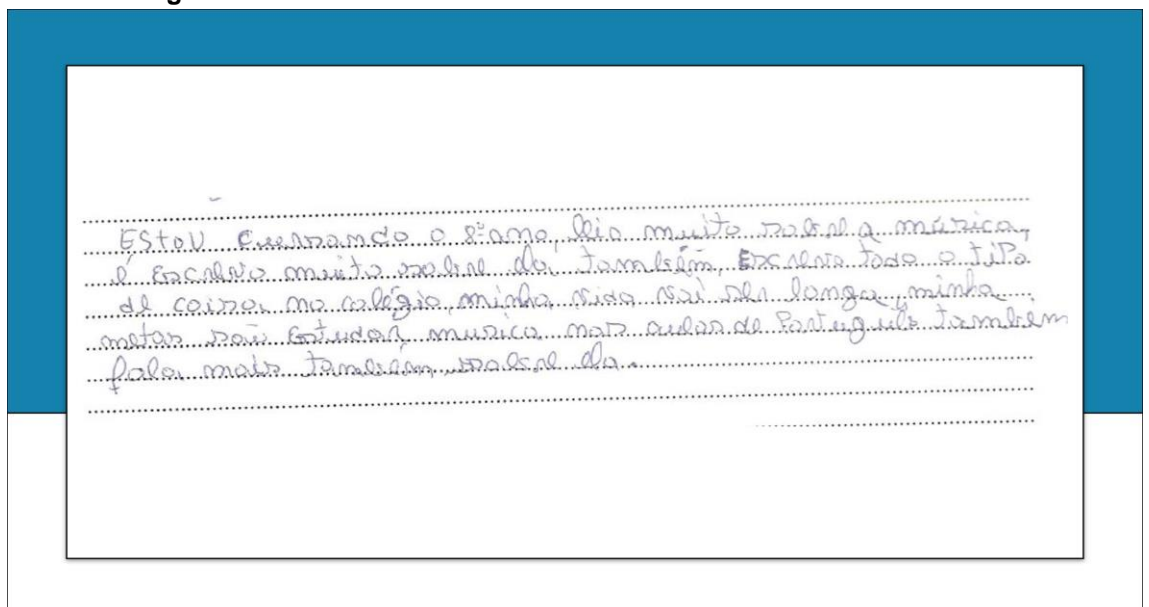 EStoU Cursando o 8º ano, leio muito sobre a música,
é Escrevo muito sobre ela também, Escrevo todo o tipo
de coisa no colégio, minha vida vai ser longa, minha
metas são Estudar musica nas aulas de Português tambem
fala mais também sobre ela.